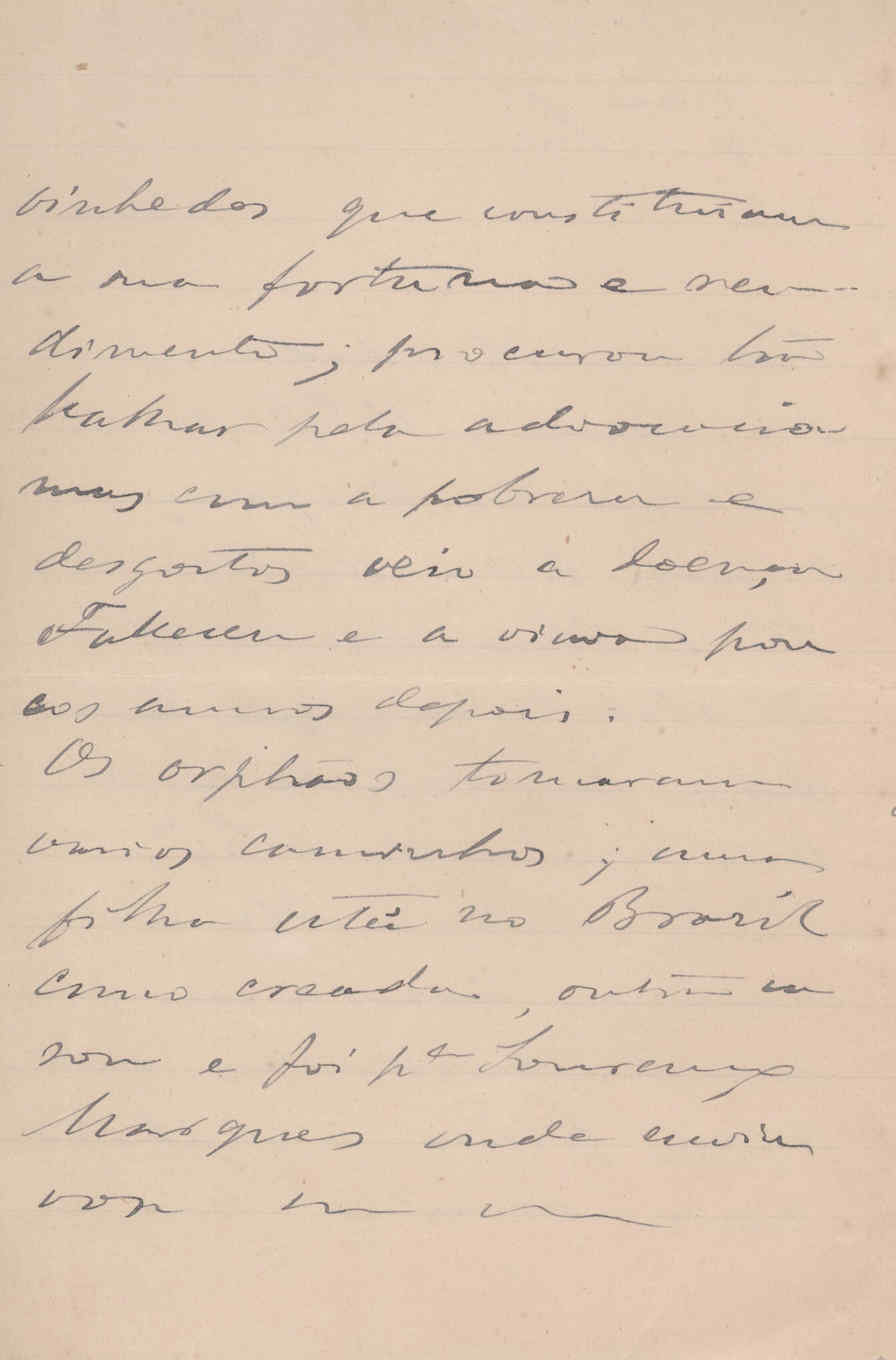 vinhedos que constituiam
a sua fortuna e ren-
dimento; procurou tra
balhar pela advocacia
mas com a pobreza e
desgostos veio a doença
Falleceu e a viuva pou
cos annos depois.
Os orphãos tomaram
varios caminhos; uma
filha está no Brazil
como creada, outra ca
sou e foi pª Lourenço
Marques onde enviu
vou